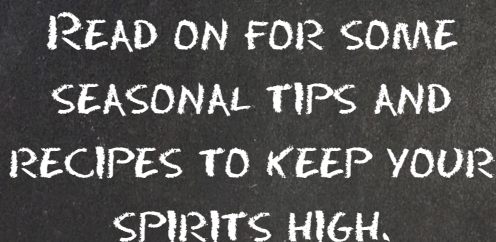 READ ON FOR SOME
SEASONAL TIPS AND
RECIPES TO KEEP YOUR
SPIRITS HIGH.